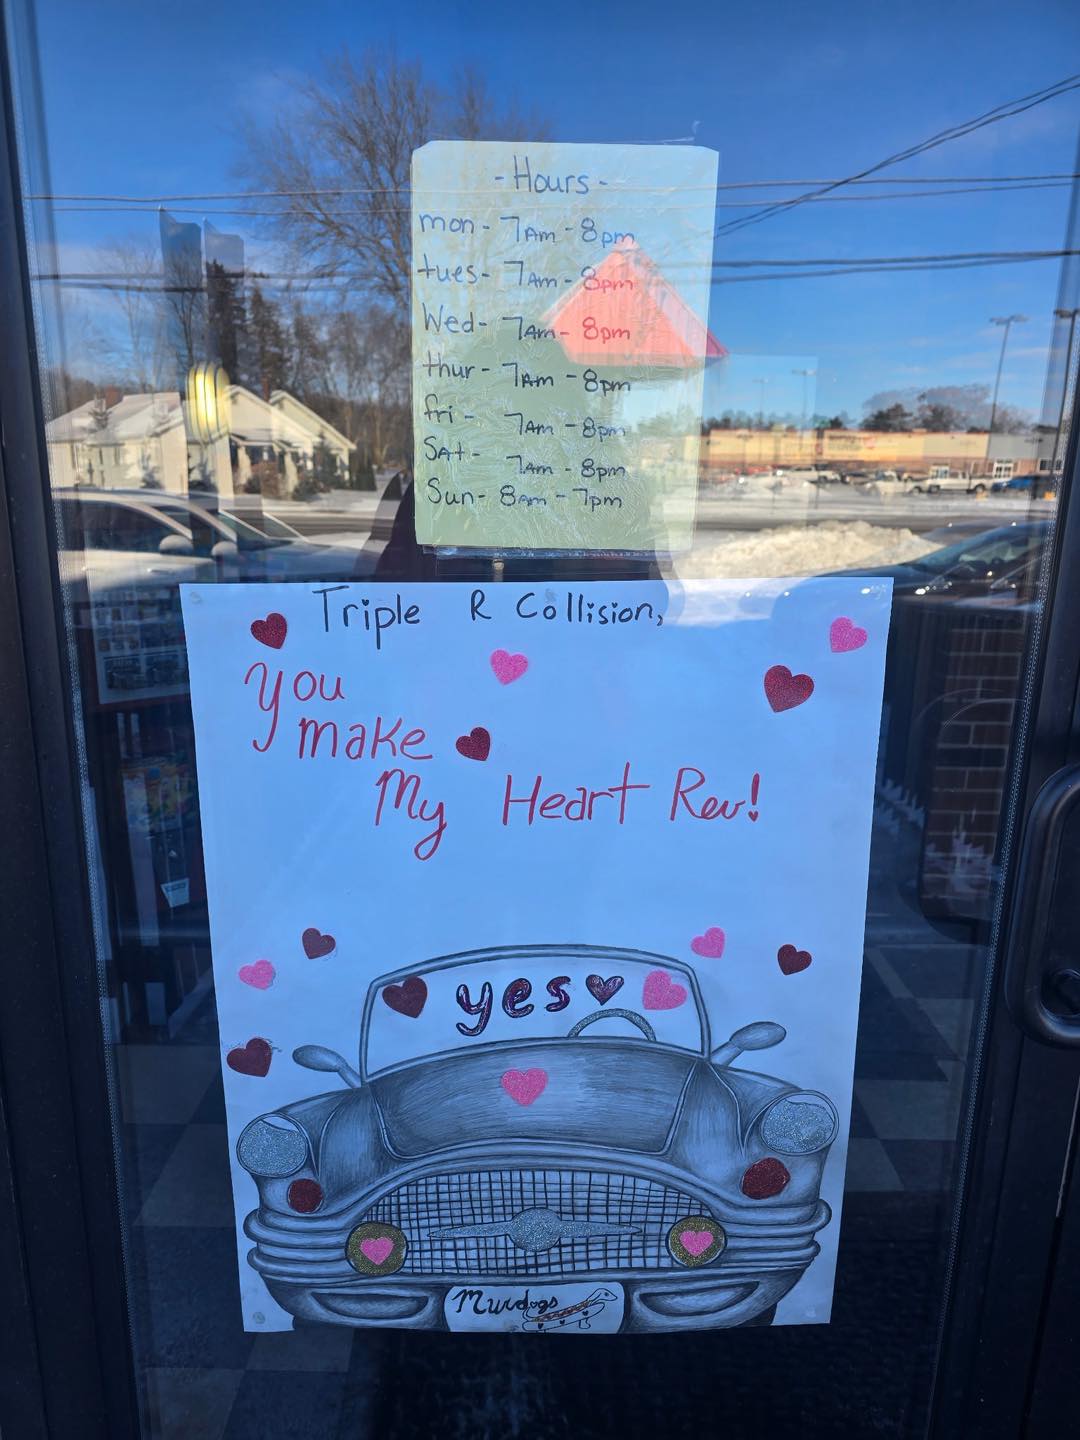 - Hours -
mon - 7Am - 8pm
tues - 7Am - 8pm
Wed - 7Am - 8pm
thur - 7Am - 8pm
fri - 7Am - 8pm
SAt - 7Am - 8pm
Sun - 8am - 7pm
Triple R Collision,
You
make
My Heart Rev!
yes
Murdogs